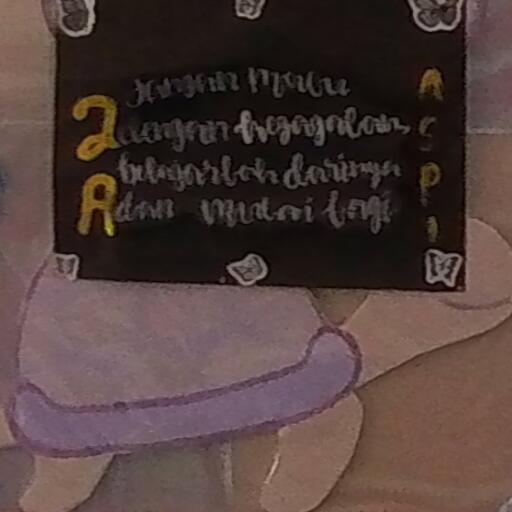 Jangan malu
dengan kegagalan,
belajarlah darinya
dan mulai lagi
2
A
A
S
P
I